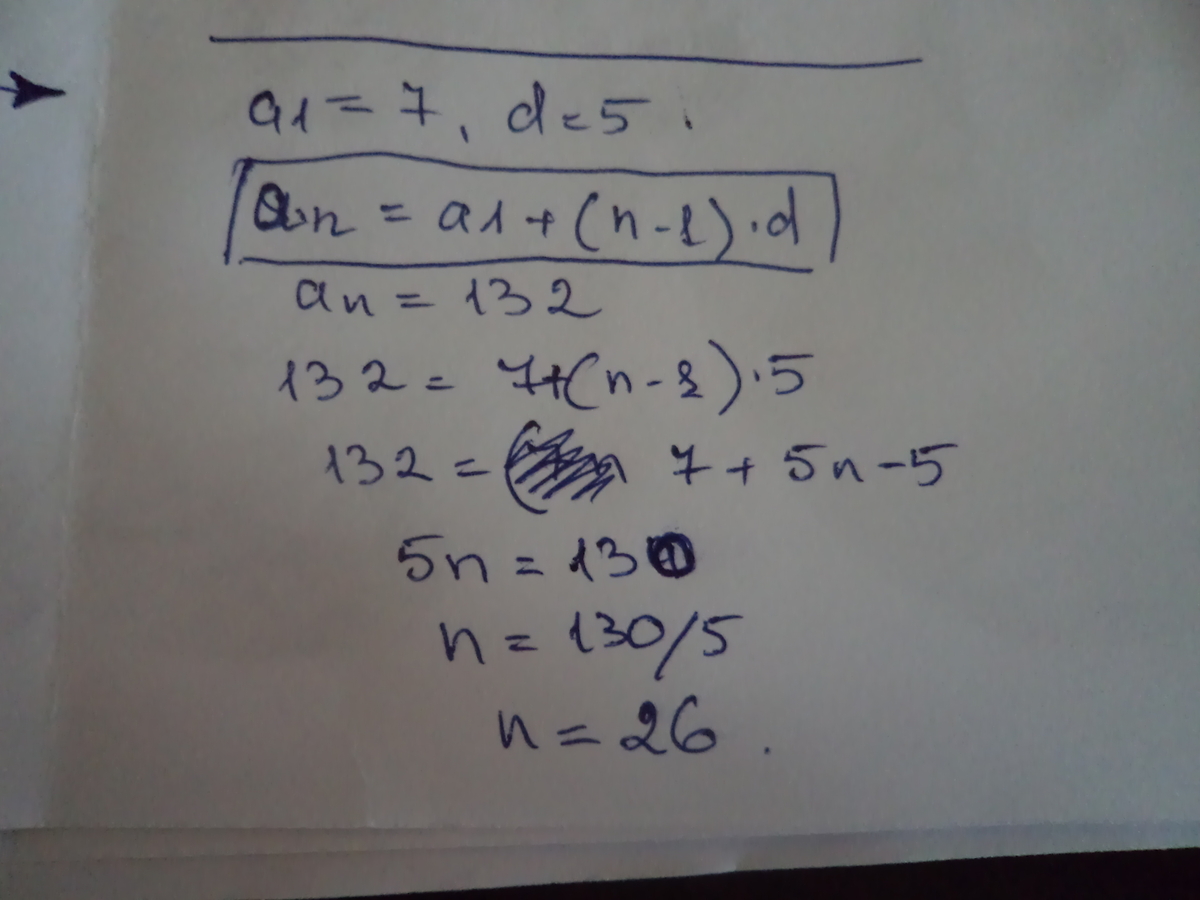 a1 = 7, d = 5.
an = a1 + (n-1)·d
an = 132
132 = 7+(n-1)·5
132 = 7 + 5n - 5
5n = 130
n = 130/5
n = 26.